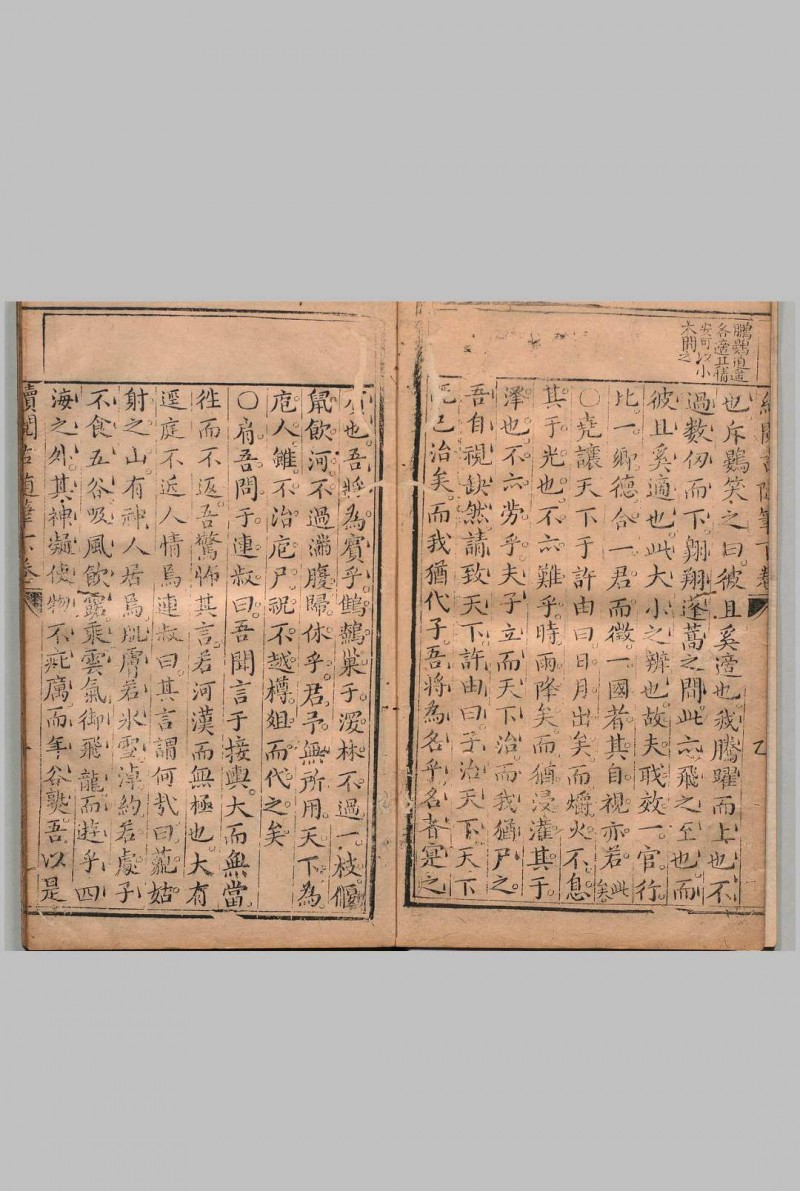 鵬鷃逍遙
各適其情
安可以小
大間之
續閱古隨筆下卷
也斥鷃笑之曰彼且奚適也我騰躍而上也不
過數仞而下翱翔蓬蒿之間此亦飛之至也而
彼且奚適也此大小之辨也故夫聀效一官行
比一鄉德合一君而徵一國者其自視亦若此矣
○堯讓天下于許由曰日月出矣而爝火不息
其于光也不亦難乎時雨降矣而猶浸灌其于
澤也不亦劳乎夫子立而天下治而我猶尸之
吾自視缺然請致天下許由曰子治天下天下
既已治矣而我猶代子吾將為名乎名者寔之
賓也吾將為賓乎鷦鷯巢于深林不過一枝偃
鼠飲河不過滿腹歸休乎君予無所用天下為
庖人雖不治庖尸祝不越樽俎而代之矣
○肩吾問于連叔曰吾聞言于接輿大而無當
徃而不返吾驚怖其言若河漢而無極也大有
逕庭不近人情焉連叔曰其言謂何㢤曰藐姑
射之山有神人居焉肌膚若氷雪淖約若處子
不食五谷吸風飲露乘雲氣御飛龍而遊乎四
海之外其神凝使物不疵厲而年谷熟吾以是
續閱古隨筆下卷